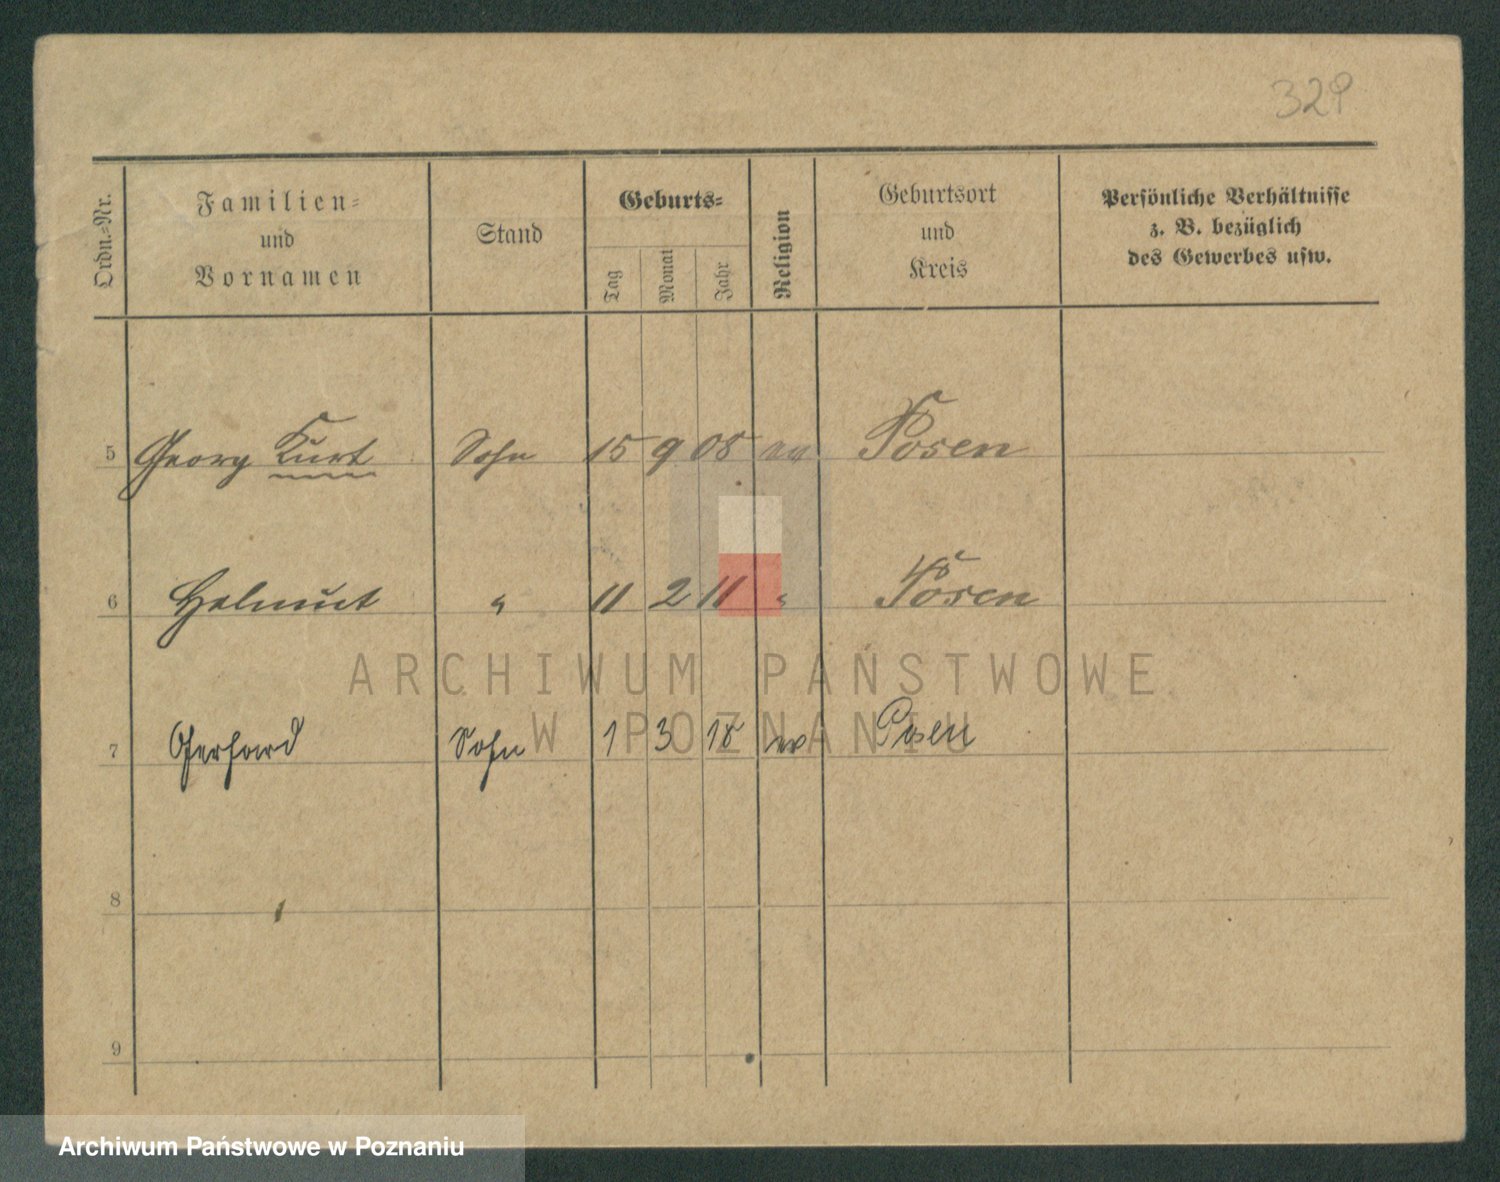 329
Ordn.-Nr.
Familien-
und
Vornamen
Stand
Geburts-
Tag
Monat
Jahr
Religion
Geburtsort
und
Kreis
Persönliche Verhältnisse
z. B. bezüglich
des Gewerbes usw.
5 Georg Kurt Sohn 15 9 08 ev Posen
6 Helmut " 11 2 11 " Posen
ARCHIWUM PAŃSTWOWE
W POZNANIU
7 Gerhard Sohn 1 3 18 ev Posen
8
9
Archiwum Państwowe w Poznaniu